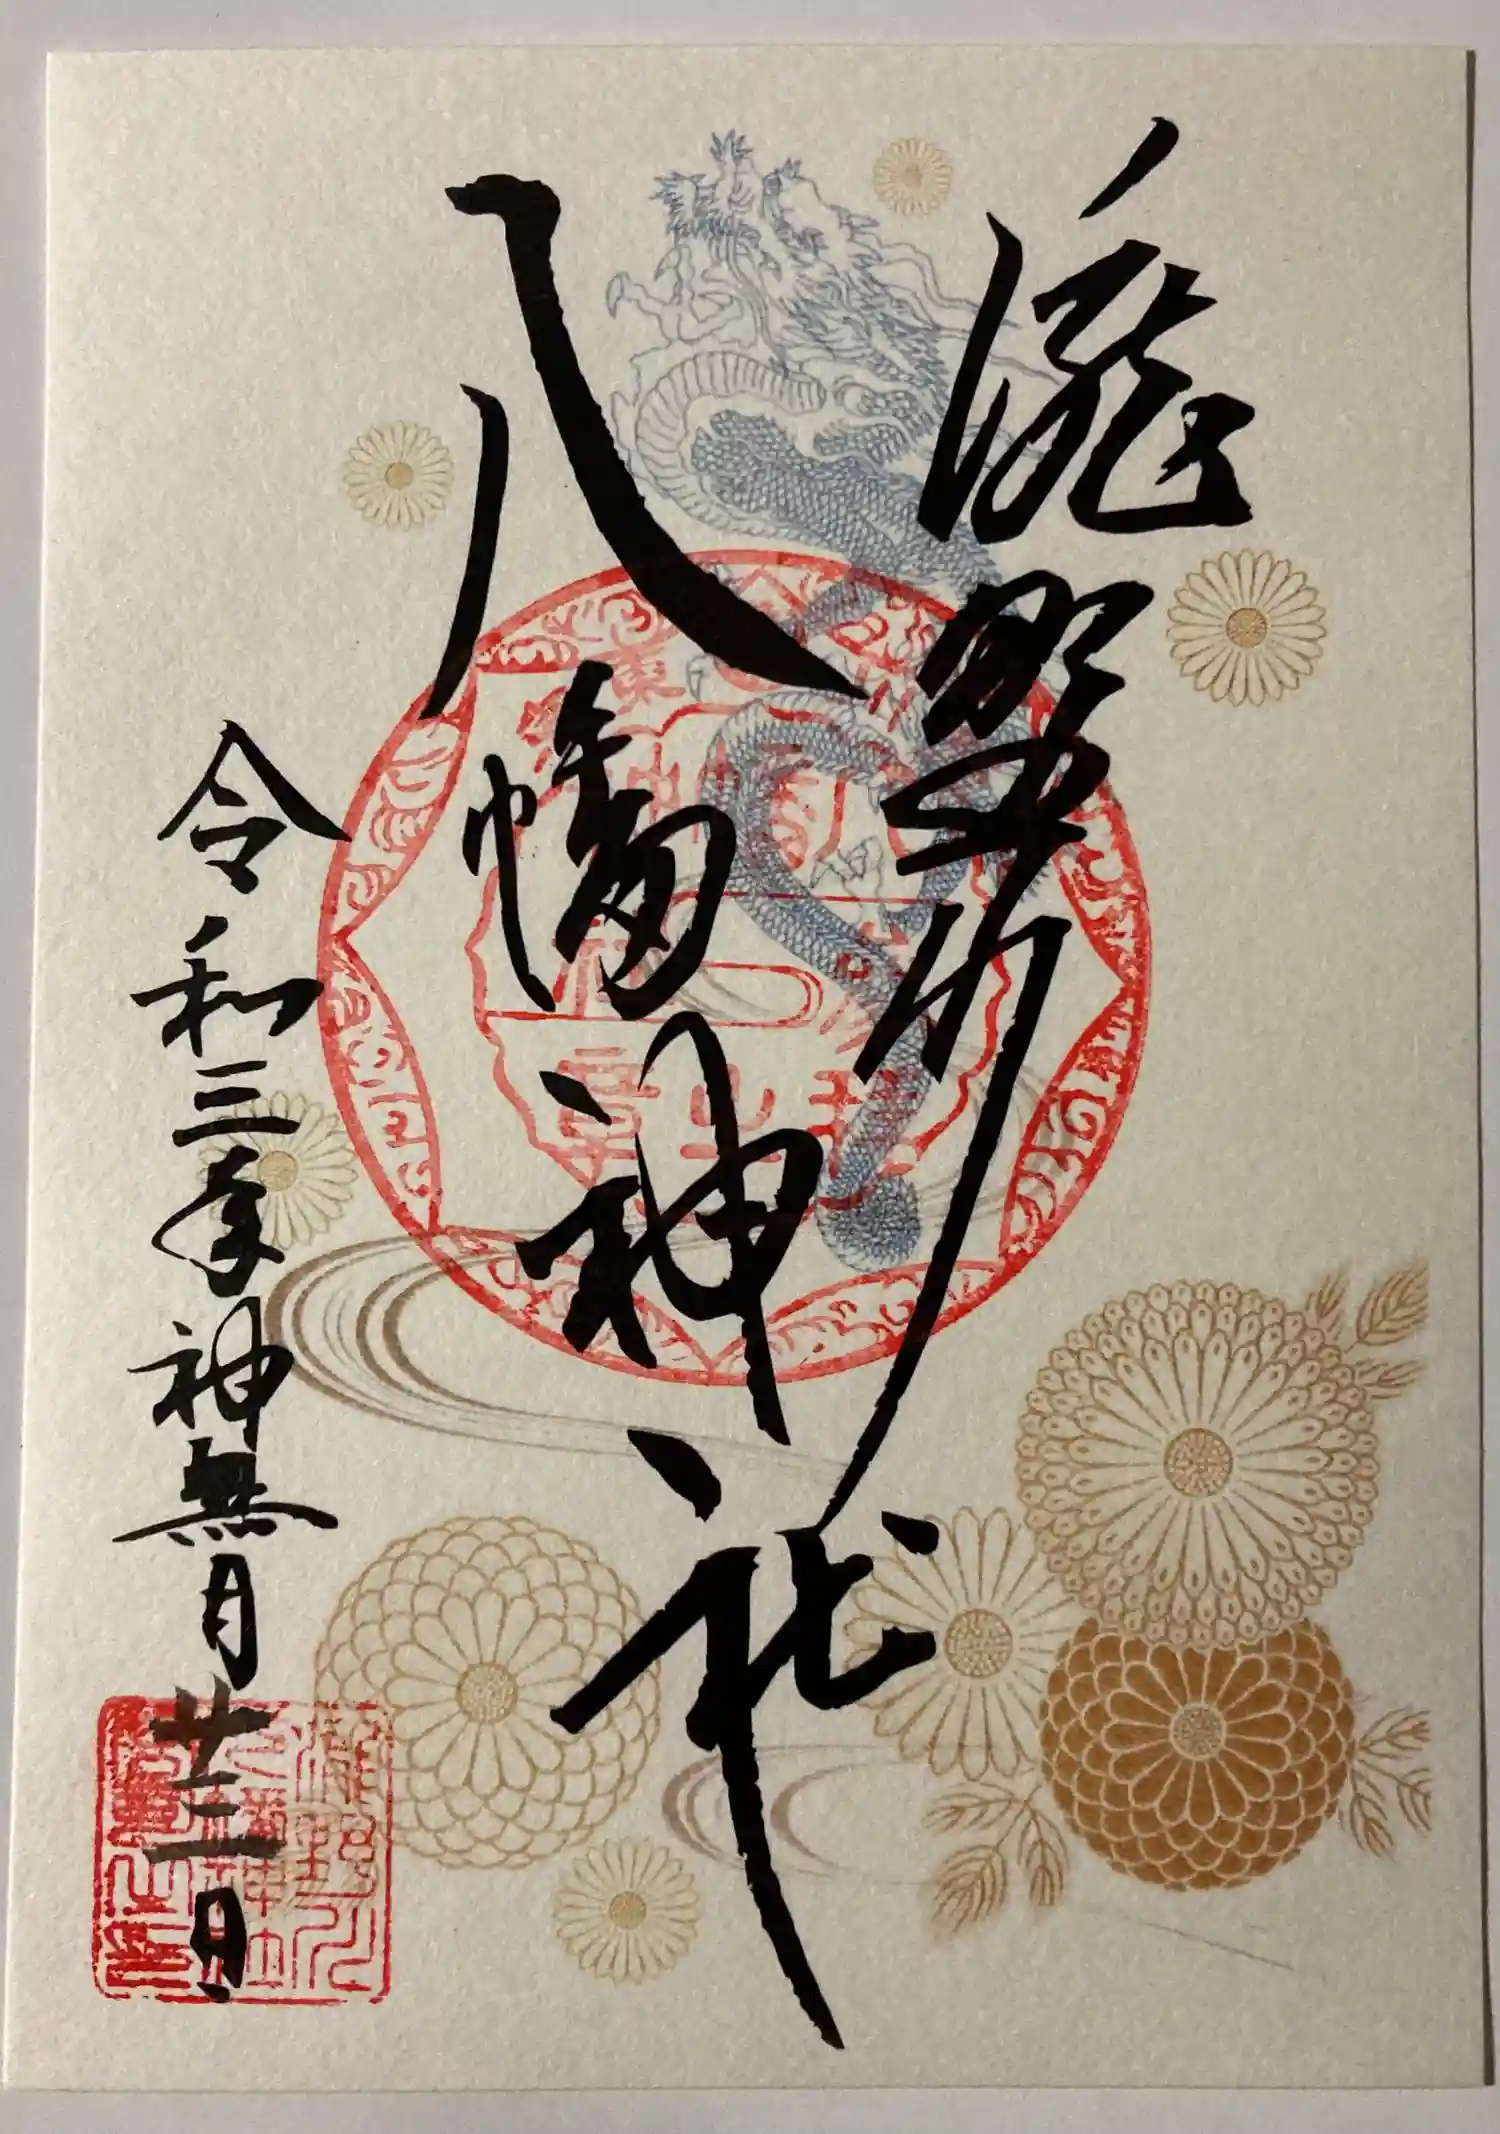 滝野川
八幡神社
令和三年神無月廿三日